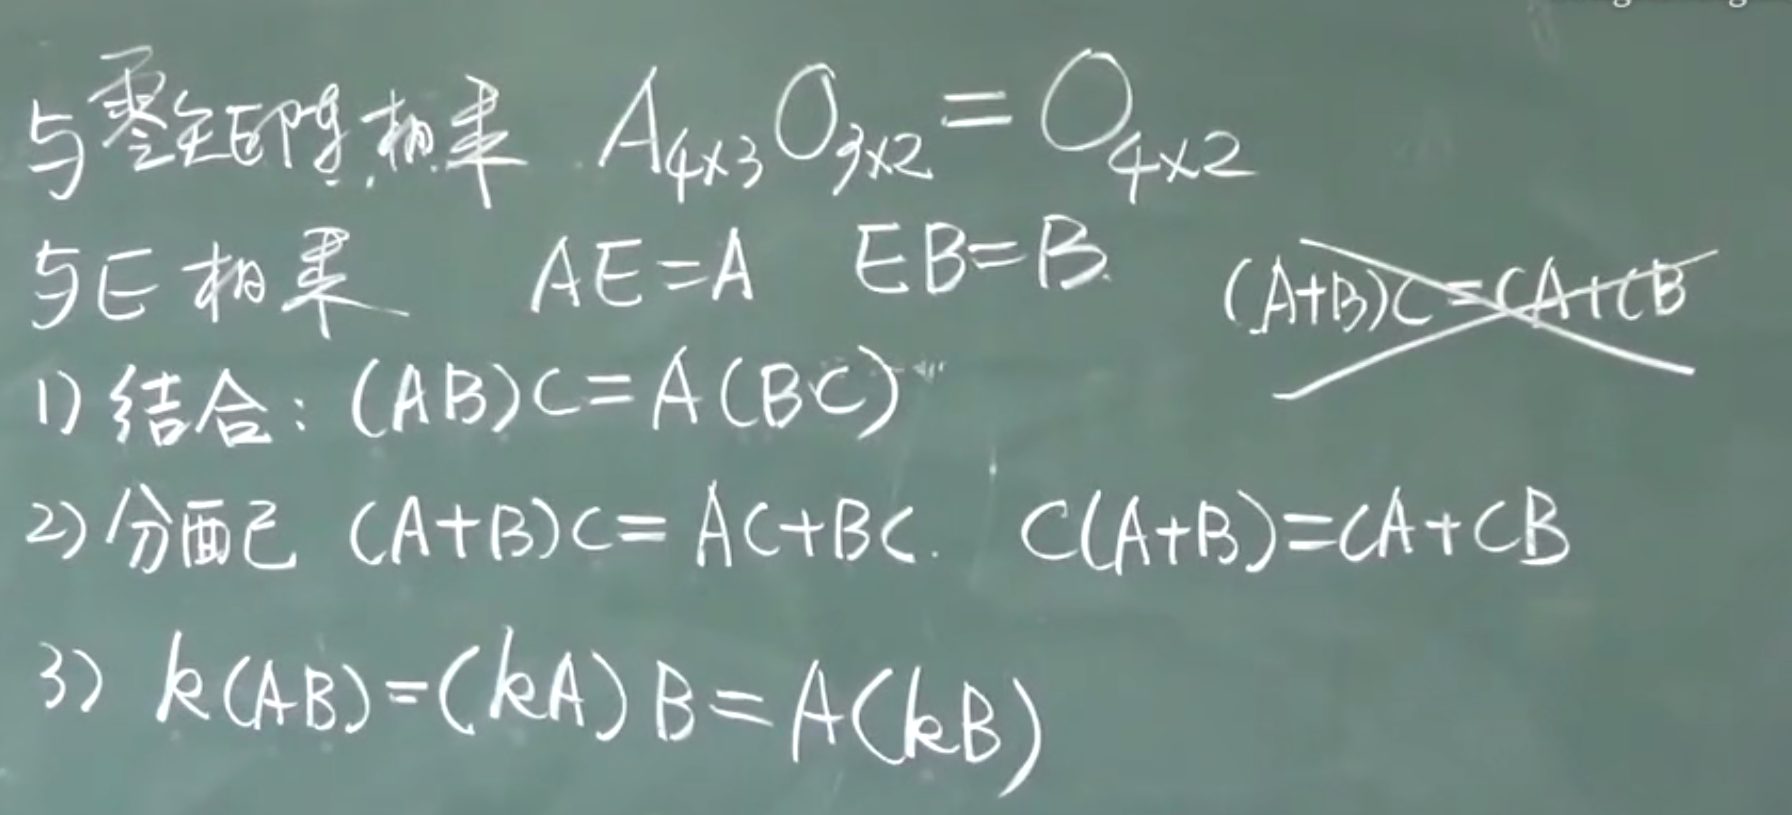 与零矩阵相乘 A₄ₓ₃ O₃ₓ₂ = O₄ₓ₂
与E相乘 AE=A EB=B.
(A+B)C=CA+CB
1) 结合: (AB)C=A(BC)
2) 分配 (A+B)C=AC+BC. C(A+B)=CA+CB
3) k(AB)=(kA)B=A(kB)